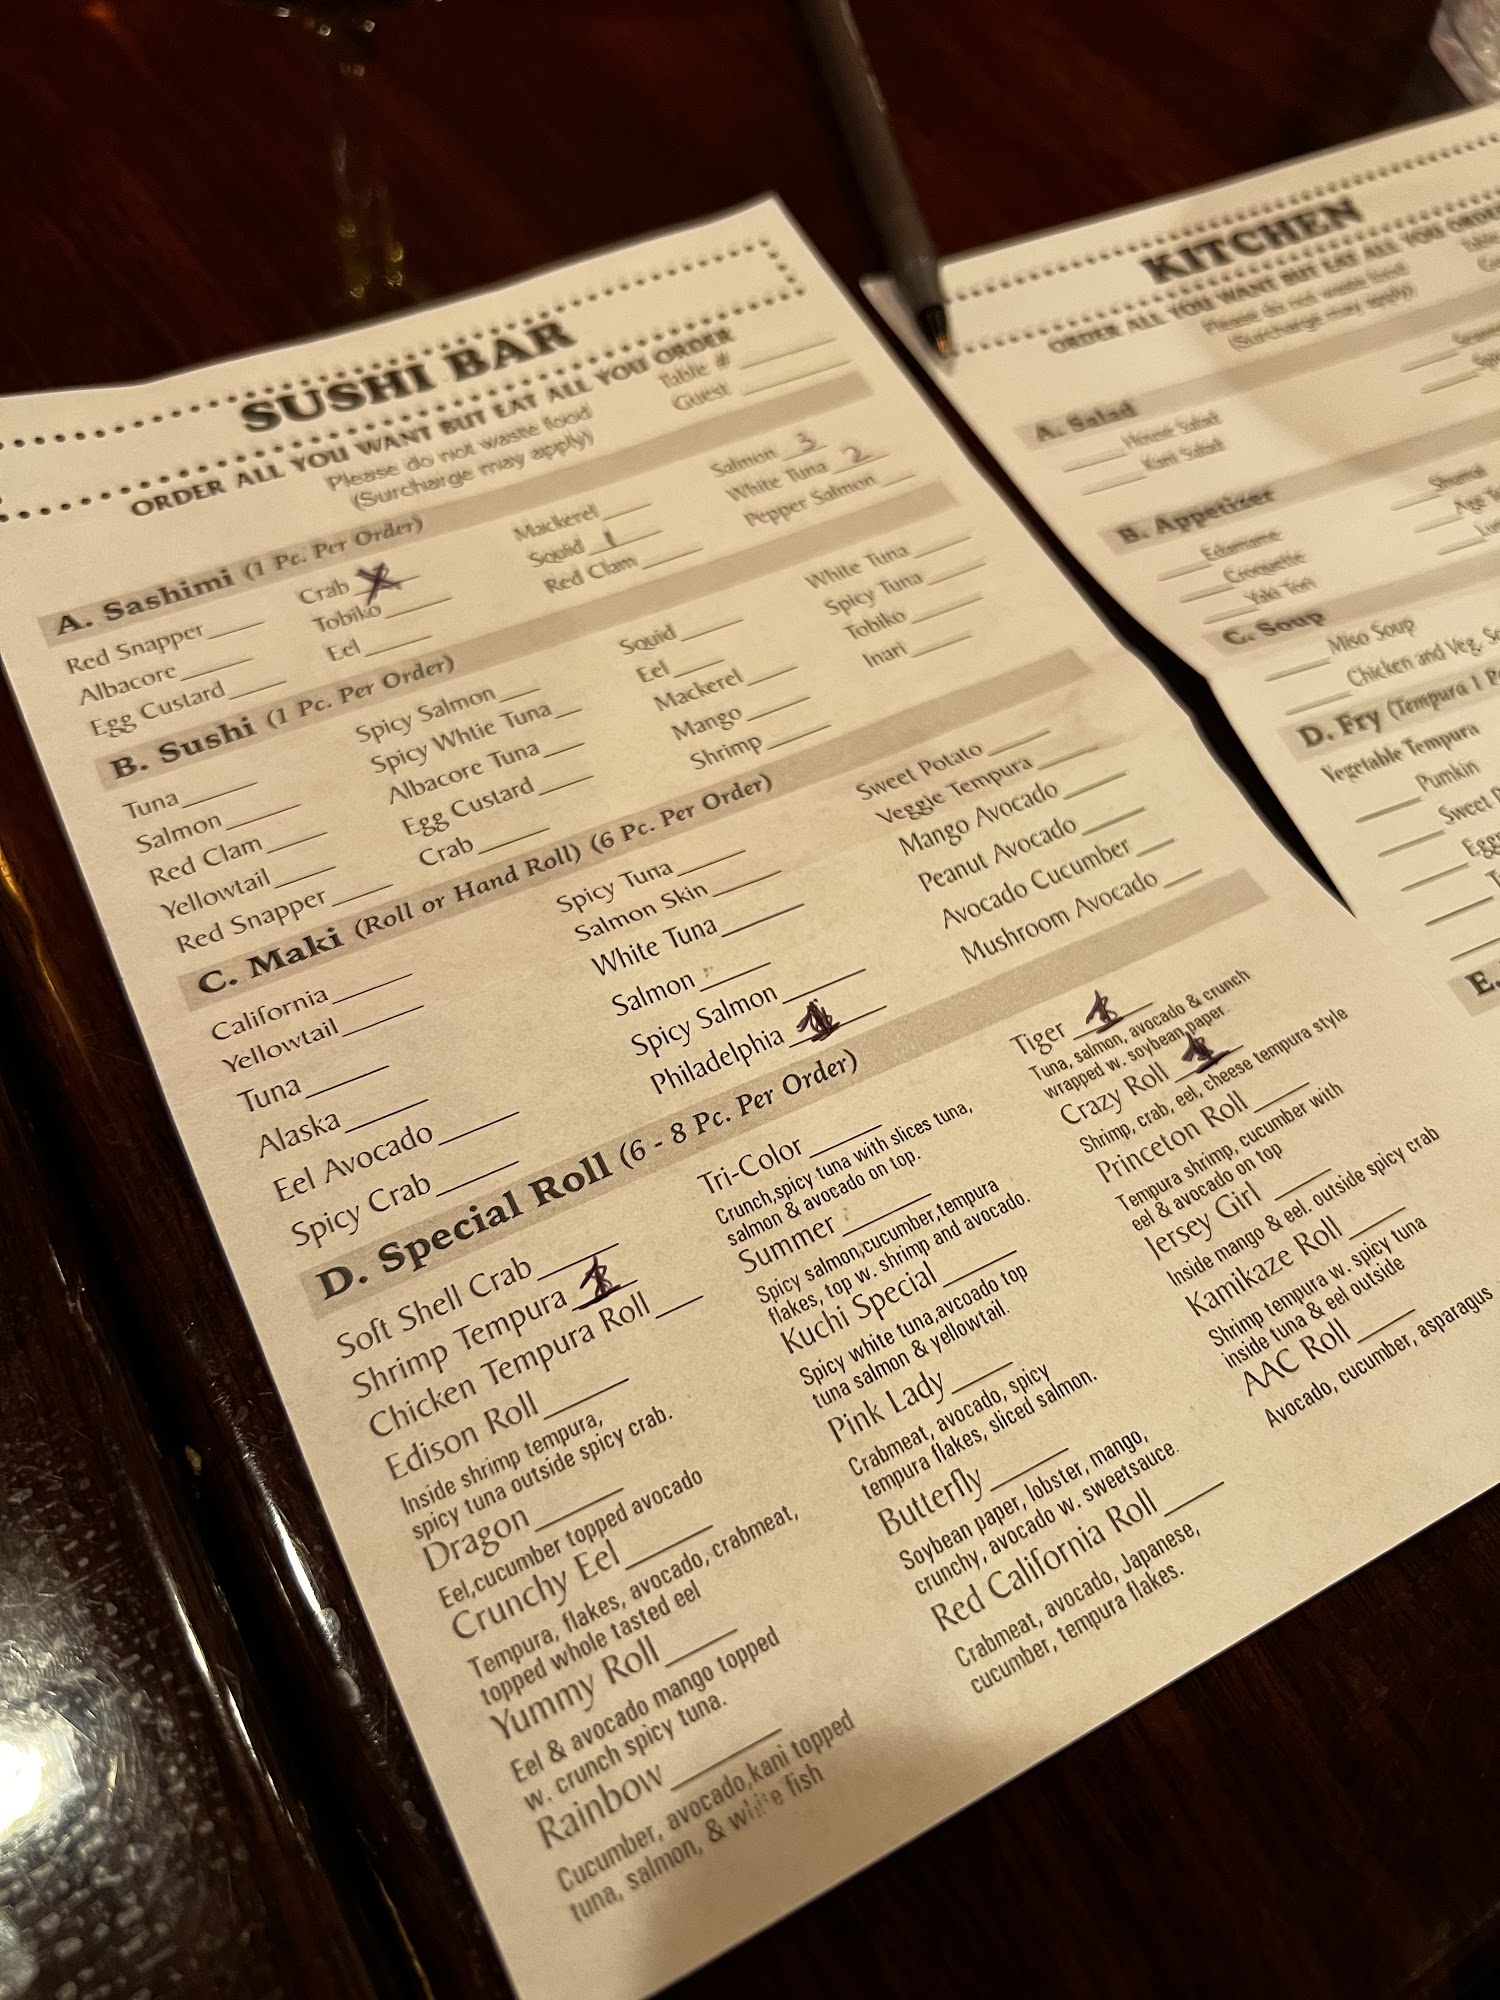 SUSHI BAR
ORDER ALL YOU WANT BUT EAT ALL YOU ORDER
Please do not waste food
(Surcharge may apply)
Table #
Guest
A. Sashimi (1 Pc. Per Order)
Red Snapper
Albacore
Egg Custard
Crab
Tobiko
Eel
Mackerel
Squid 1
Red Clam
Salmon 3
White Tuna 2
Pepper Salmon
B. Sushi (1 Pc. Per Order)
Tuna
Salmon
Red Clam
Yellowtail
Red Snapper
Spicy Salmon
Spicy Whtie Tuna
Albacore Tuna
Egg Custard
Crab
Squid
Eel
Mackerel
Mango
Shrimp
White Tuna
Spicy Tuna
Tobiko
Inari
C. Maki (Roll or Hand Roll) (6 Pc. Per Order)
California
Yellowtail
Tuna
Alaska
Eel Avocado
Spicy Crab
Spicy Tuna
Salmon Skin
White Tuna
Salmon
Spicy Salmon
Philadelphia
Sweet Potato
Veggie Tempura
Mango Avocado
Peanut Avocado
Avocado Cucumber
Mushroom Avocado
D. Special Roll (6 - 8 Pc. Per Order)
Soft Shell Crab
Shrimp Tempura
Chicken Tempura Roll
Edison Roll
Inside shrimp tempura,
spicy tuna outside spicy crab.
Dragon
Eel,cucumber topped avocado
Crunchy Eel
Tempura, flakes, avocado, crabmeat,
topped whole tasted eel
Yummy Roll
Eel & avocado mango topped
w. crunch spicy tuna.
Rainbow
Cucumber, avocado,kani topped
tuna, salmon, & white fish
Tri-Color
Crunch,spicy tuna with slices tuna,
salmon & avocado on top.
Summer
Spicy salmon,cucumber,tempura
flakes, top w. shrimp and avocado.
Kuchi Special
Spicy white tuna,avcoado top
tuna salmon & yellowtail.
Pink Lady
Crabmeat, avocado, spicy
tempura flakes, sliced salmon.
Butterfly
Soybean paper, lobster, mango,
crunchy, avocado w. sweetsauce.
Red California Roll
Crabmeat, avocado, Japanese,
cucumber, tempura flakes.
Tiger
Tuna, salmon, avocado & crunch
wrapped w. soybean paper.
Crazy Roll
Shrimp, crab, eel, cheese tempura style
Princeton Roll
Tempura shrimp, cucumber with
eel & avocado on top
Jersey Girl
Inside mango & eel. outside spicy crab
Kamikaze Roll
Shrimp tempura w. spicy tuna
inside tuna & eel outside
AAC Roll
Avocado, cucumber, asparagus
KITCHEN
ORDER ALL YOU WANT BUT EAT ALL YOU ORDER
Please do not waste food
(Surcharge may apply)
A. Salad
House Salad
Kani Salad
B. Appetizer
Edamame
Croquette
Yaki Tori
Shumai
C. Soup
Miso Soup
Chicken and Veg.
D. Fry (Tempura 1
Vegetable Tempura
Pumkin
Sweet
E.